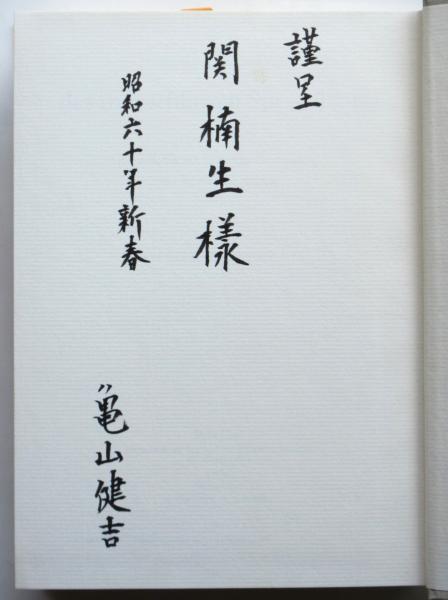 謹呈
関楠生様
昭和六十年新春
亀山健吉